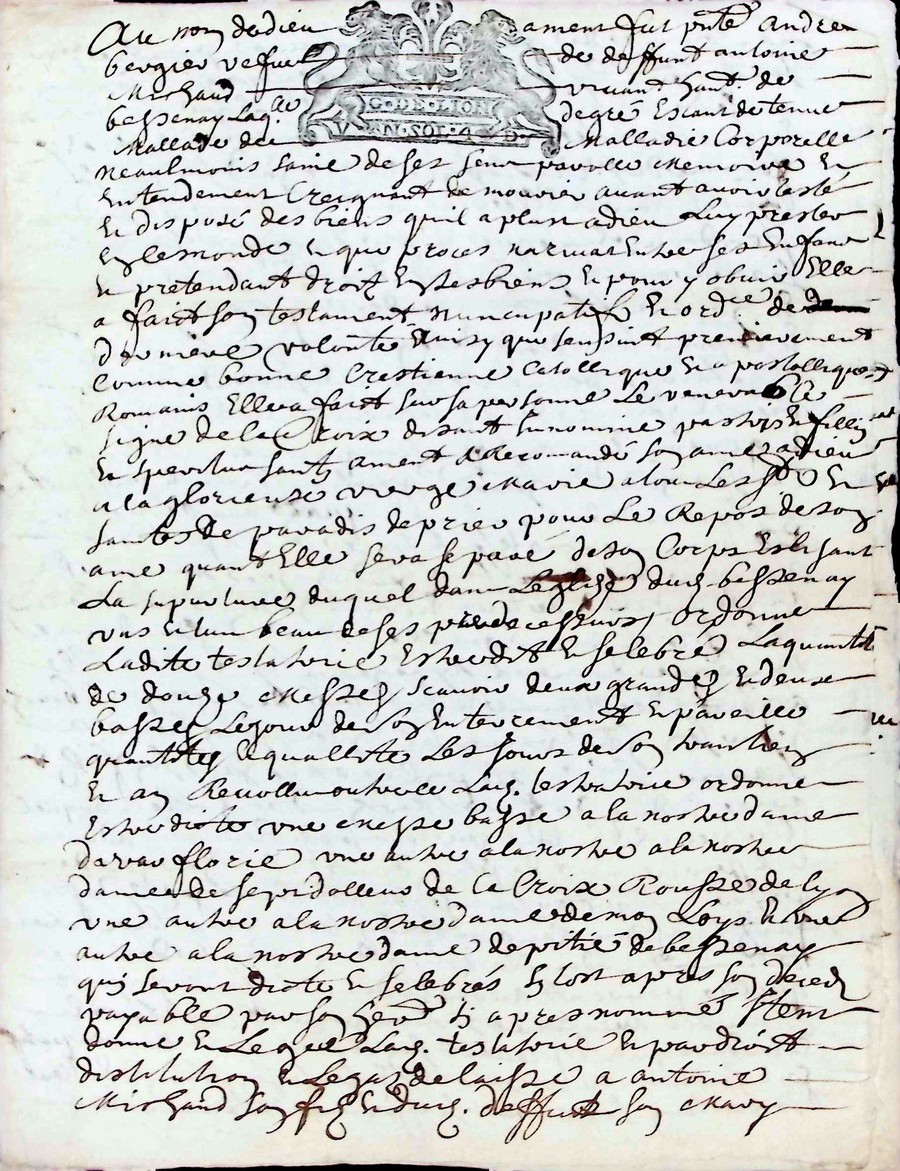 Au nom de dieu ament fut pnte andree
bergier vefue de deffunt antoine
Mirchaud vivant hant. de
bessenay Laq.lle de gré Estant detenue
Mallade de Malladie Corporelle
G.DE.LION
V N.SOL.4.D
neaulmoins saine de ses sens parolle memoire Et
Entendement Creignant de mourir avant avoir testé
Et disposé des biens qu'il a plust a dieu Luy prester
En ce monde Et que proces narivat Entre ses Enfans
Et pretendant droit En ses biens Et pour y obvier Elle
a faict son testament nuncupatif Et ord.ce de
derniere volonté Ainsy que sensuit premierement
Comme bonne Crestienne Catollique Et apostollique
Romains Elle a faict sur sa personne Le venerable
signe de la Croix disant in nomine patris Et filly
Et speritus santy ament A Recomandé son ame a dieu
a la glorieuse vierge Marie a tous Les s.ts Et
santes de paradis de prier pour Le Repos de son
ame quant Elle sera separé de son Corps Eslisant
La supulture duquel dans Leglise dud. bessenay
vas Et tumbeau de ses predecesseurs ordonne
Ladite testatrice Estre dit Et selebré La quantité
de douze Messes scavoir deux grandes Et deux
basses Le jour de son Enterrement Et pareille
quantités Et quallité Les jours de son
Et an Revollu outre ce Lad. testatrice ordonne
Estre dicte une Messe basse a la nostre dame
de vau florie une autre a la nostre a la nostre
dame de sept dolleurs de la Croix Rousse de Lyon
une autre a la nostre dame de mon Loys Et une
autre a la nostre dame de pitié de bessenay
qui seront dicte Et selebrés si tost apres son deced
payable par son her. si apres nommé Item
donne Et Legue Lad. testatrice Et par droict
distitution Et Legat delaisse a antoine
Mirchaud son fils Et dud. deffunt son Mary